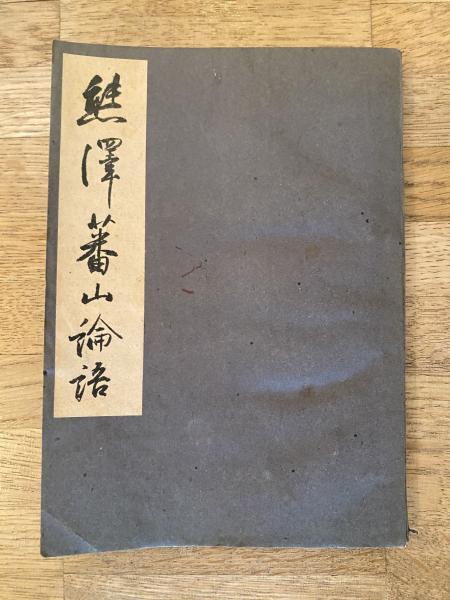 熊澤蕃山論語